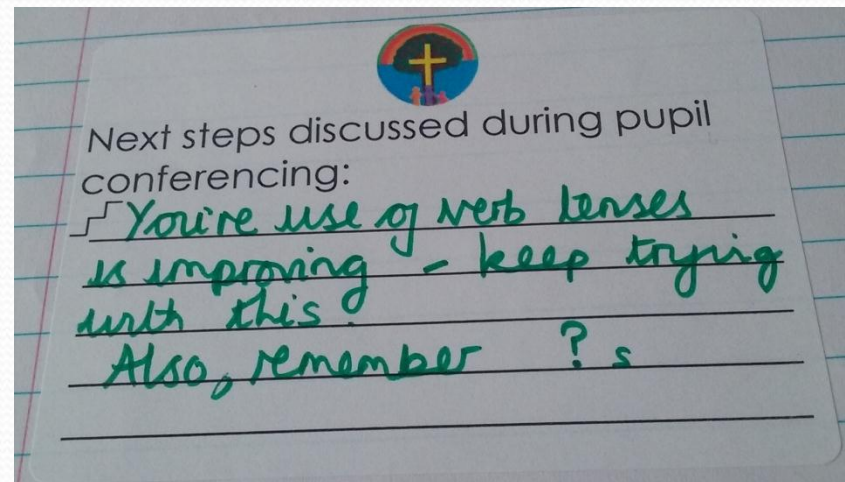 Next steps discussed during pupil
conferencing:
You're use of verb tenses
is improving - keep trying
with this.
Also, remember ? s